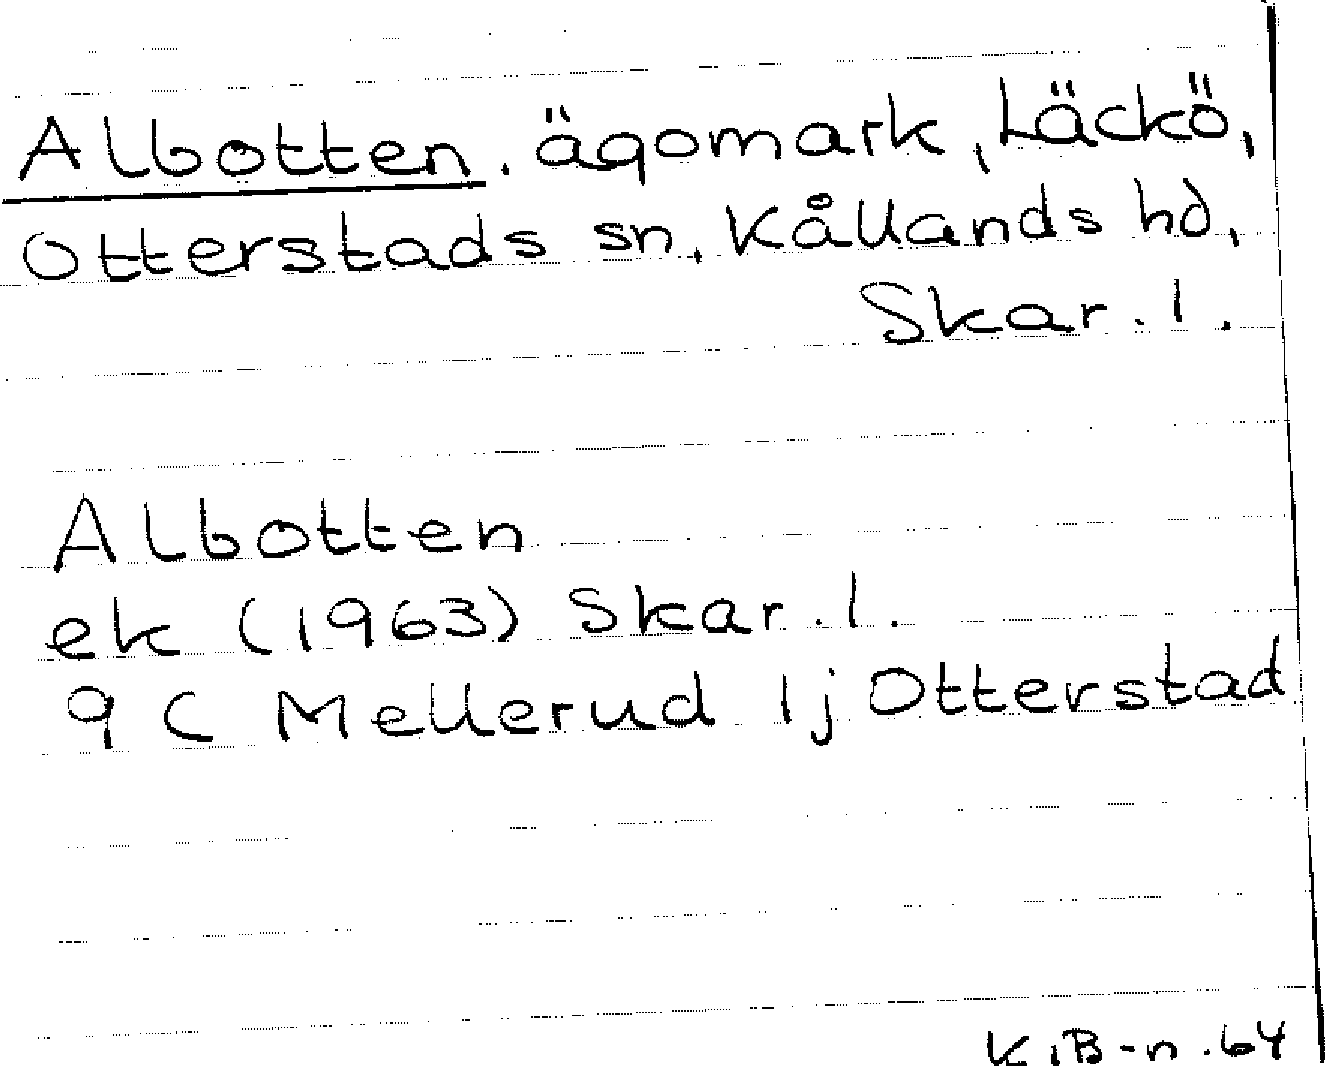 Albotten, ägomark, Läckö,
Otterstads sn, Kållands hd,
Skar. l.
Albotten
ek (1963) Skar. l.
9 C Mellerud 1j Otterstad
K.B-n. 64